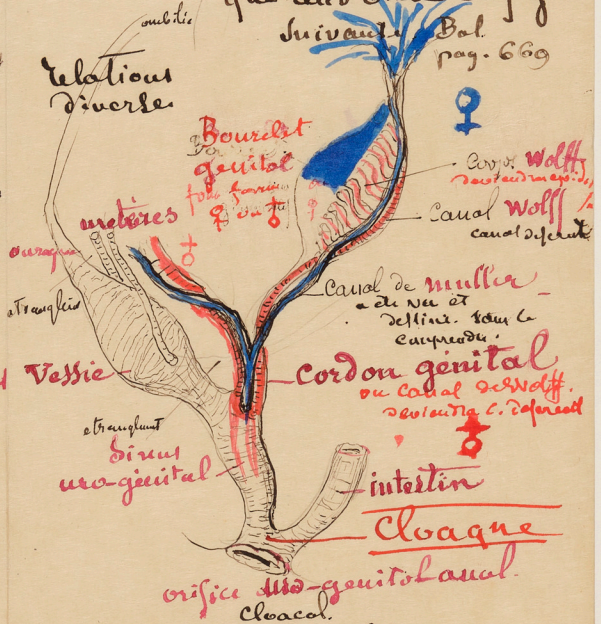 ombilic
suivante Bol.
pag. 669
relations
diverses
♀
Bourrelet
génital
♀ ou ♂
corps Wolff
Canal Wolff
canal déférent
uretères
ouraque
Canal de muller
a été vu et
dessiné. Pour le
comprendre.
Vessie
cordon génital
ou canal de Wolff.
deviendra C. déférent
♂
Sinus
uro-génital
intestin
Cloaque
orifice uro-génital anal.
Cloacal.